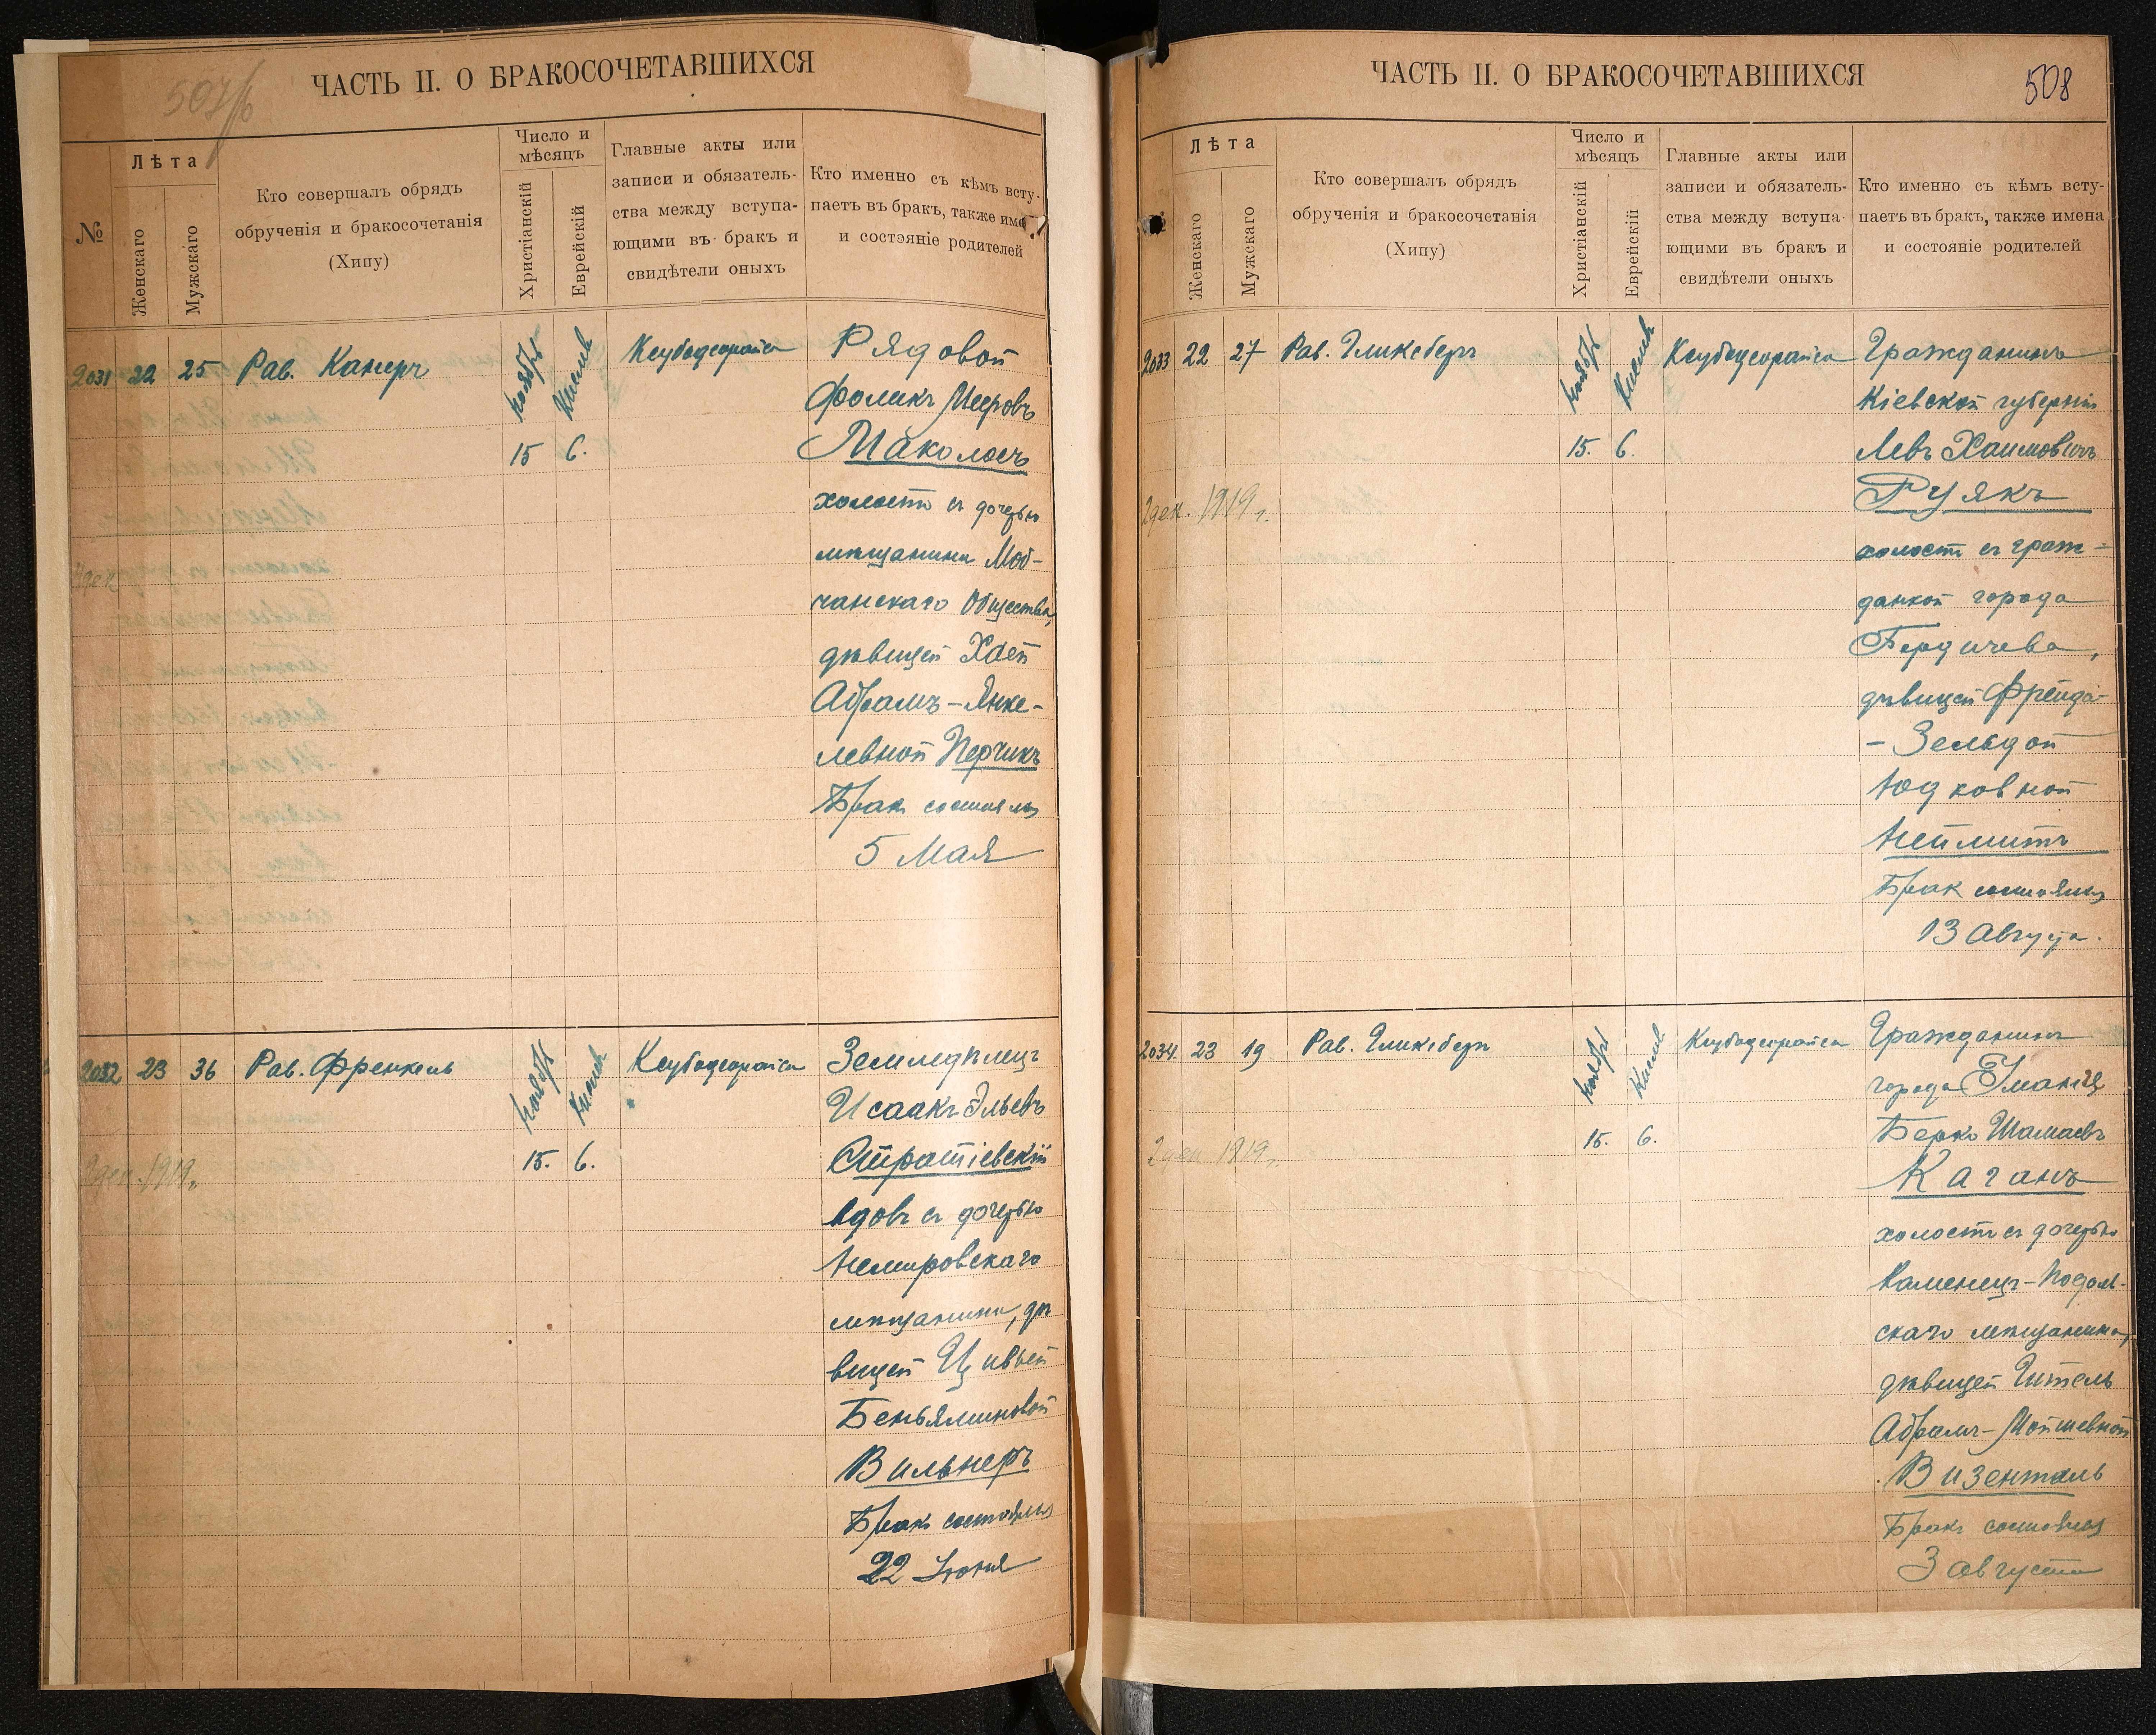 507/б
ЧАСТЬ II. О БРАКОСОЧЕТАВШИХСЯ
№
Лѣта
Женскаго
Мужскаго
Кто совершалъ обрядъ
обрученія и бракосочетанія
(Хипу)
Число и
мѣсяцъ
Христіанскій
Еврейскій
Главные акты или
записи и обязатель-
ства между вступа-
ющими въ бракъ и
свидѣтели оныхъ
Кто именно съ кѣмъ всту-
паетъ въ бракъ, также име
и состояніе родителей
2031 22 25 Рав. Канеръ
Ноябрь Кислев
15 6.
Ксубодеорайса
Рядовой
Фоликъ Мееровъ
Маколосъ
холостъ съ дочерью
мѣщанина Мов-
чанскаго Общества,
дѣвицей Хаей
Абрамъ-Янке-
левной Перчикъ
Бракъ состоялся
5 Мая
2032 23 36 Рав. Френкель
Ноябрь Кислев
15. 6.
2 дек. 1919 г.
Ксубодеорайса
Земледѣлецъ
Исаакъ Эльевъ
Стратіевскій
вдовъ съ дочерью
Немировскаго
мѣщанина, дѣ
вицей Цивьей
Беньяминовой
Вильнеръ
Бракъ состоялся
22 Іюня
ЧАСТЬ II. О БРАКОСОЧЕТАВШИХСЯ
508
Лѣта
Женскаго
Мужскаго
Кто совершалъ обрядъ
обрученія и бракосочетанія
(Хипу)
Число и
мѣсяцъ
Христіанскій
Еврейскій
Главные акты или
записи и обязатель-
ства между вступа-
ющими въ бракъ и
свидѣтели оныхъ
Кто именно съ кѣмъ всту-
паетъ въ бракъ, также имена
и состояніе родителей
2033 22 27 Рав. Гликсбергъ
Ноябрь Кислев
15. 6.
2 дек. 1919 г.
Ксубодеорайса
Гражданинъ
Кіевской губерніи
Левъ Хаимовичъ
Руякъ
холостъ съ граж-
данкой города
Бердичева,
дѣвицей Фрейда-
-Зельдой
Юдковной
Неймитъ
Бракъ состоялся
13 Августа.
2034. 23 19 Рав. Гликсбергъ
Ноябрь Кислев
15. 6.
2 дек 1919 г.
Ксубодеорайса
Гражданинъ
города Уманя
Берко Шамаевъ
Каганъ
холостъ съ дочерью
Каменецъ-Подоль-
скаго мѣщанина,
дѣвицей Гитель
Абрамъ-Мойшевной
Визенталь
Бракъ состоялся
3 августа